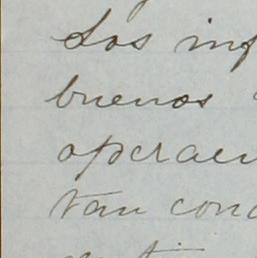 Los inf
buenos
operaci
tan con